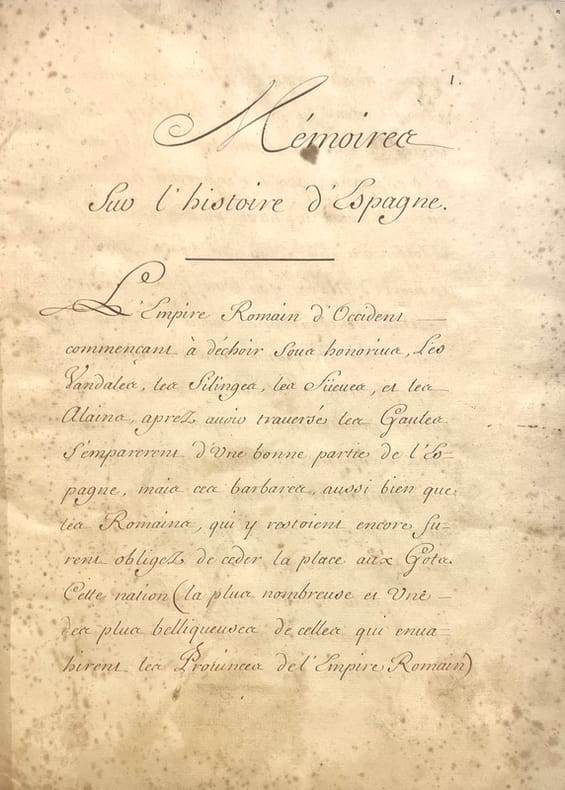 1.
Mémoires
Sur l'histoire d'Espagne.
L'Empire Romain d'Occident
commençant à dechoir sous honorius, Les
Vandales, les Silinges, les Süeves, et les
Alains, aprez avoir traversé les Gaules
S'emparerent d'Une bonne partie de l'Es=
pagne, mais ces barbares, aussi bien que
les Romains, qui y restoient encore fu=
rent obligez de ceder la place aux Gots.
Cette nation (la plus nombreuse et Une
des plus belliqueuses de celles qui enva=
hirent les Provinces de l'Empire Romain)